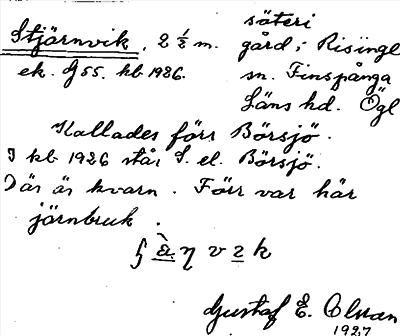 säteri
Stjärnvik, 2 1/2 m. gård i Risinge
ek. G 55. kb 1926. sn. Finspånga
Läns hd. Ögl
Kallades förr Börsjö.
I kb 1926 står S. el. Börsjö.
Där är kvarn. Förr var här
järnbruk.
Gustaf E. Olman
1927